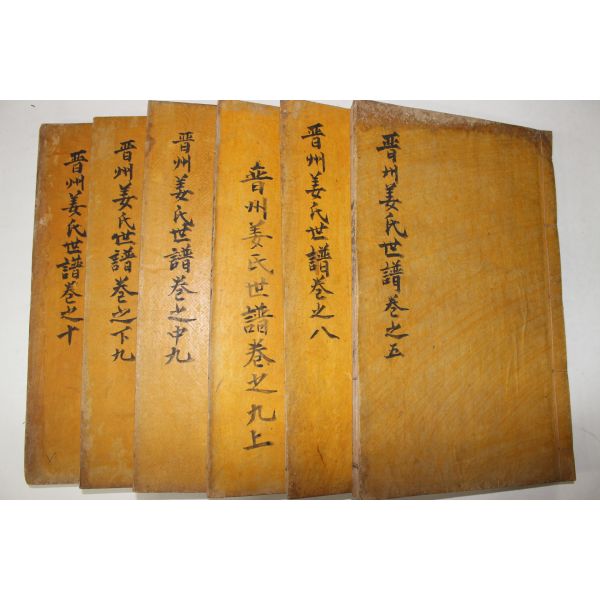 晋州姜氏世譜卷之五
晋州姜氏世譜卷之八
晋州姜氏世譜卷之九上
晋州姜氏世譜卷之中九
晋州姜氏世譜卷之下九
晋州姜氏世譜卷之十